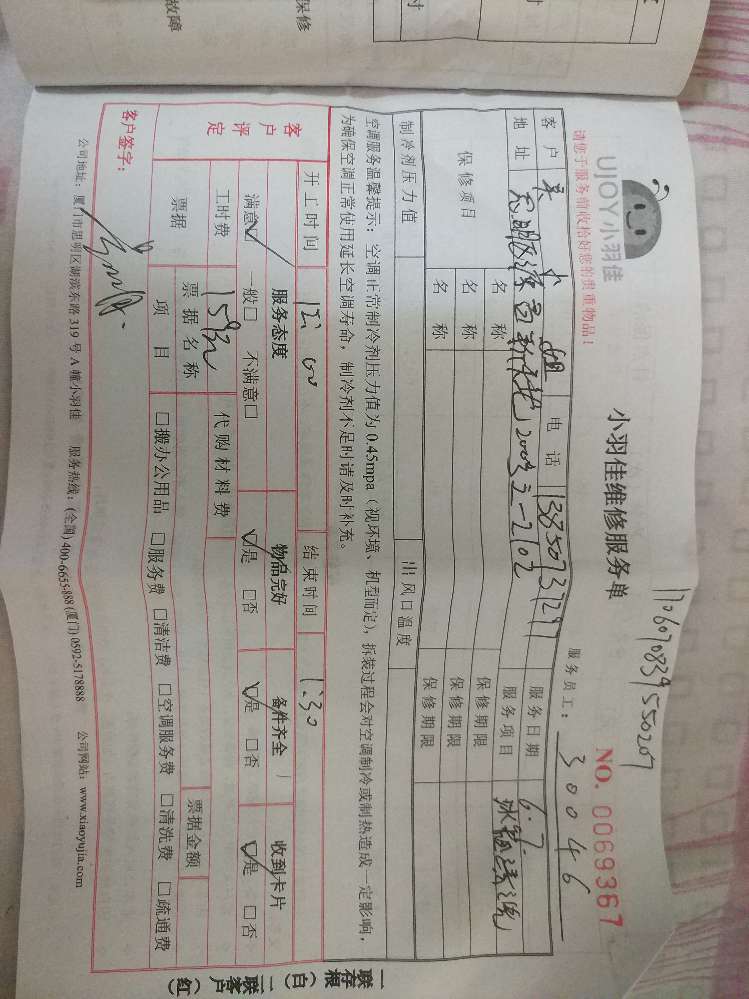 故障
保修
时
UJOY小羽佳
请您于服务前收拾好您的贵重物品！
小羽佳维修服务单
NO. 0069367
服务员工： 30046
客户 电话 服务日期 6.7.
地址 2003-2102 服务项目
保修项目 名称 保修期限
名称 保修期限
名称 保修期限
制冷剂压力值 出风口温度
空调服务温馨提示：空调正常制冷剂压力值为0.45mpa（视环境、机型而定），拆装过程会对空调制冷或制热造成一定影响，
为确保空调正常使用延长空调寿命，制冷剂不足时请及时补充。
开工时间 结束时间 1:30
客户评定 服务态度 物品完好 备件齐全 收到卡片
满意☑ 一般□ 不满意□ ☑是 □否 ☑是 □否 ☑是 □否
工时费 159元 代购材料费
票据 票据名称 票据金额
项目 □搬办公用品 □服务费 □清洁费 □空调服务费 □清洗费 □疏通费
客户签字：
公司地址：厦门市思明区湖滨东路319号A幢小羽佳 服务热线：(全国) 400-6655-888 (厦门) 0592-5178888 公司网站：www.xiaoyujia.com
一联存根（白） 二联客户（红）